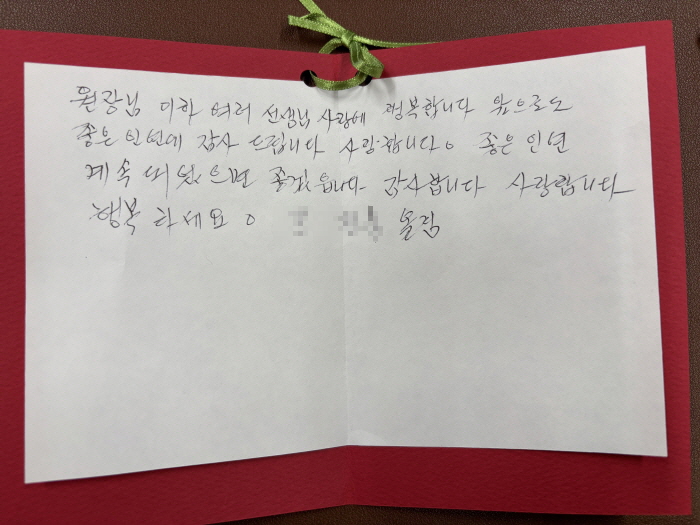 원장님 이하 여러 선생님 사랑에 행복합니다 앞으로도
좋은 인연에 감사 드립니다 사랑합니다. 좋은 인년
계속 되었으면 좋겠읍니다 감사합니다 사랑합니다
행복 하세요. 올림